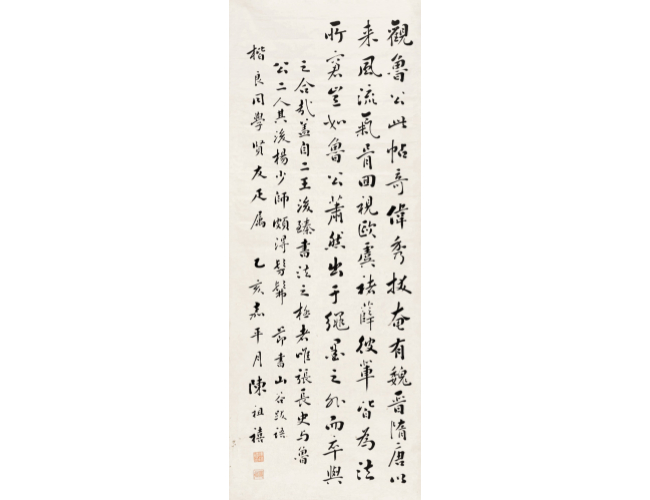 觀魯公此帖奇偉秀拔奄有魏晉隋唐以
来風流氣骨回視歐虞褚薛彼輩皆為法
所窘豈如魯公蕭然出于繩墨之外而卒與
之合哉蓋自二王後臻書法之極者唯張長史与魯
公二人其後楊少師頗得髣髴 節書山谷跋語
楷良同學賢友疋属 乙亥嘉平月陳祖禧